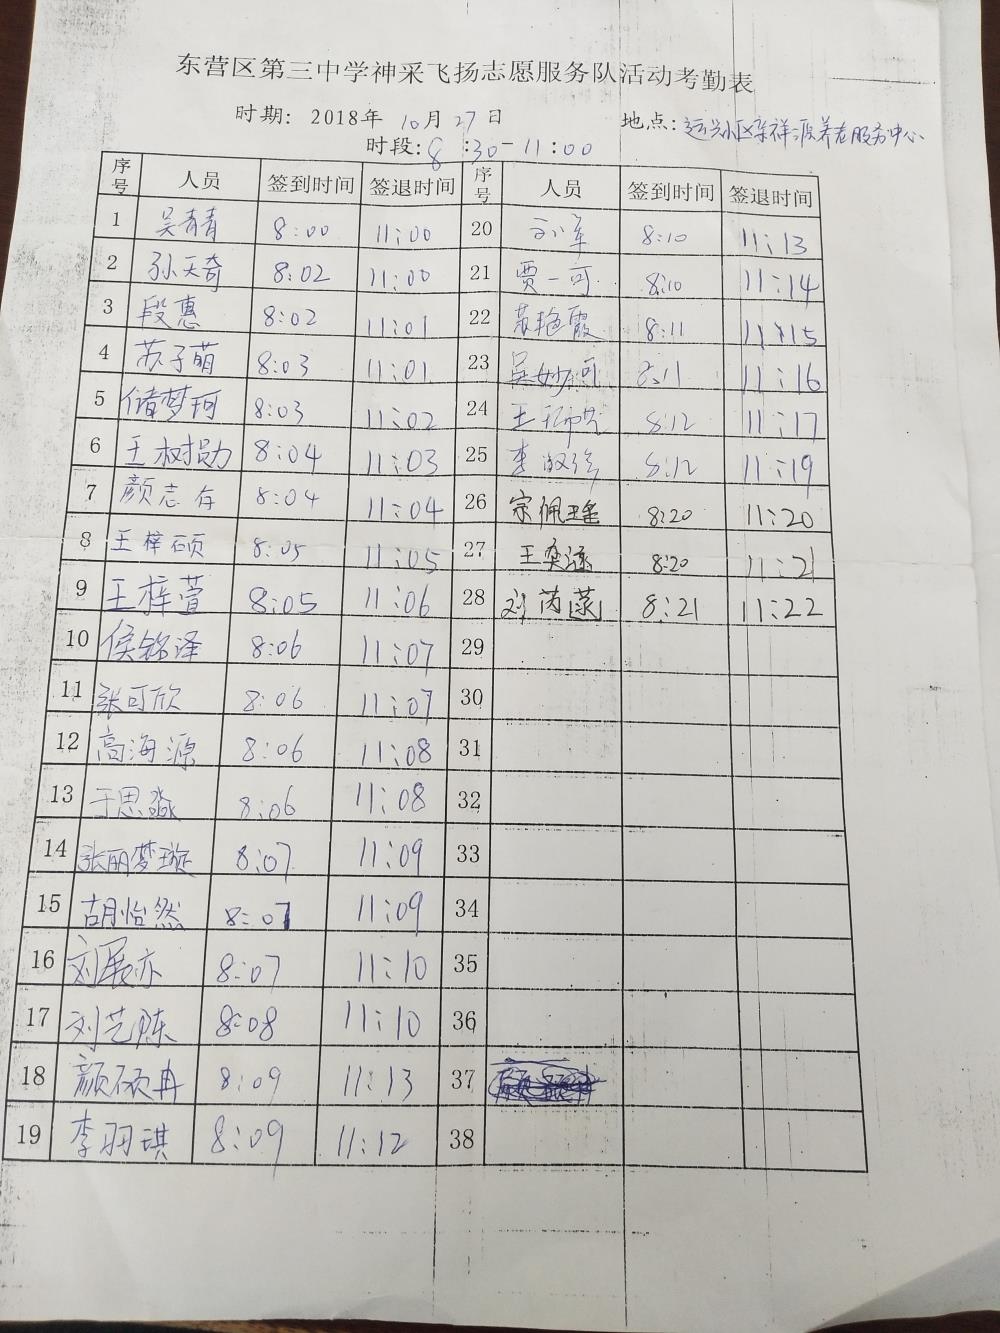 东营区第三中学神采飞扬志愿服务队活动考勤表
时期: 2018年 10月 27日
地点: 远兴小区 祥源养老服务中心
时段: 8:30-11:00
序号 人员 签到时间 签退时间 序号 人员 签到时间 签退时间
1 吴青青 8:00 11:00 20 刘军 8:10 11:13
2 孙天奇 8:02 11:00 21 贾一可 8:10 11:14
3 段惠 8:02 11:01 22 苏艳霞 8:11 11:15
4 苏子萌 8:03 11:01 23 吴妙可 8:11 11:16
5 储梦珂 8:03 11:02 24 王 8:12 11:17
6 王 8:04 11:03 25 李 8:12 11:19
7 颜志存 8:04 11:04 26 宗佩瑶 8:20 11:20
8 王梓硕 8:05 11:05 27 王奕涵 8:20 11:21
9 王梓萱 8:05 11:06 28 刘芮 8:21 11:22
10 侯铭泽 8:06 11:07 29
11 张可欣 8:06 11:07 30
12 高海源 8:06 11:08 31
13 于思淼 8:06 11:08 32
14 张丽梦璇 8:07 11:09 33
15 胡怡然 8:07 11:09 34
16 刘展亦 8:07 11:10 35
17 刘艺陈 8:08 11:10 36
18 颜硕冉 8:09 11:13 37
19 李羽琪 8:09 11:12 38